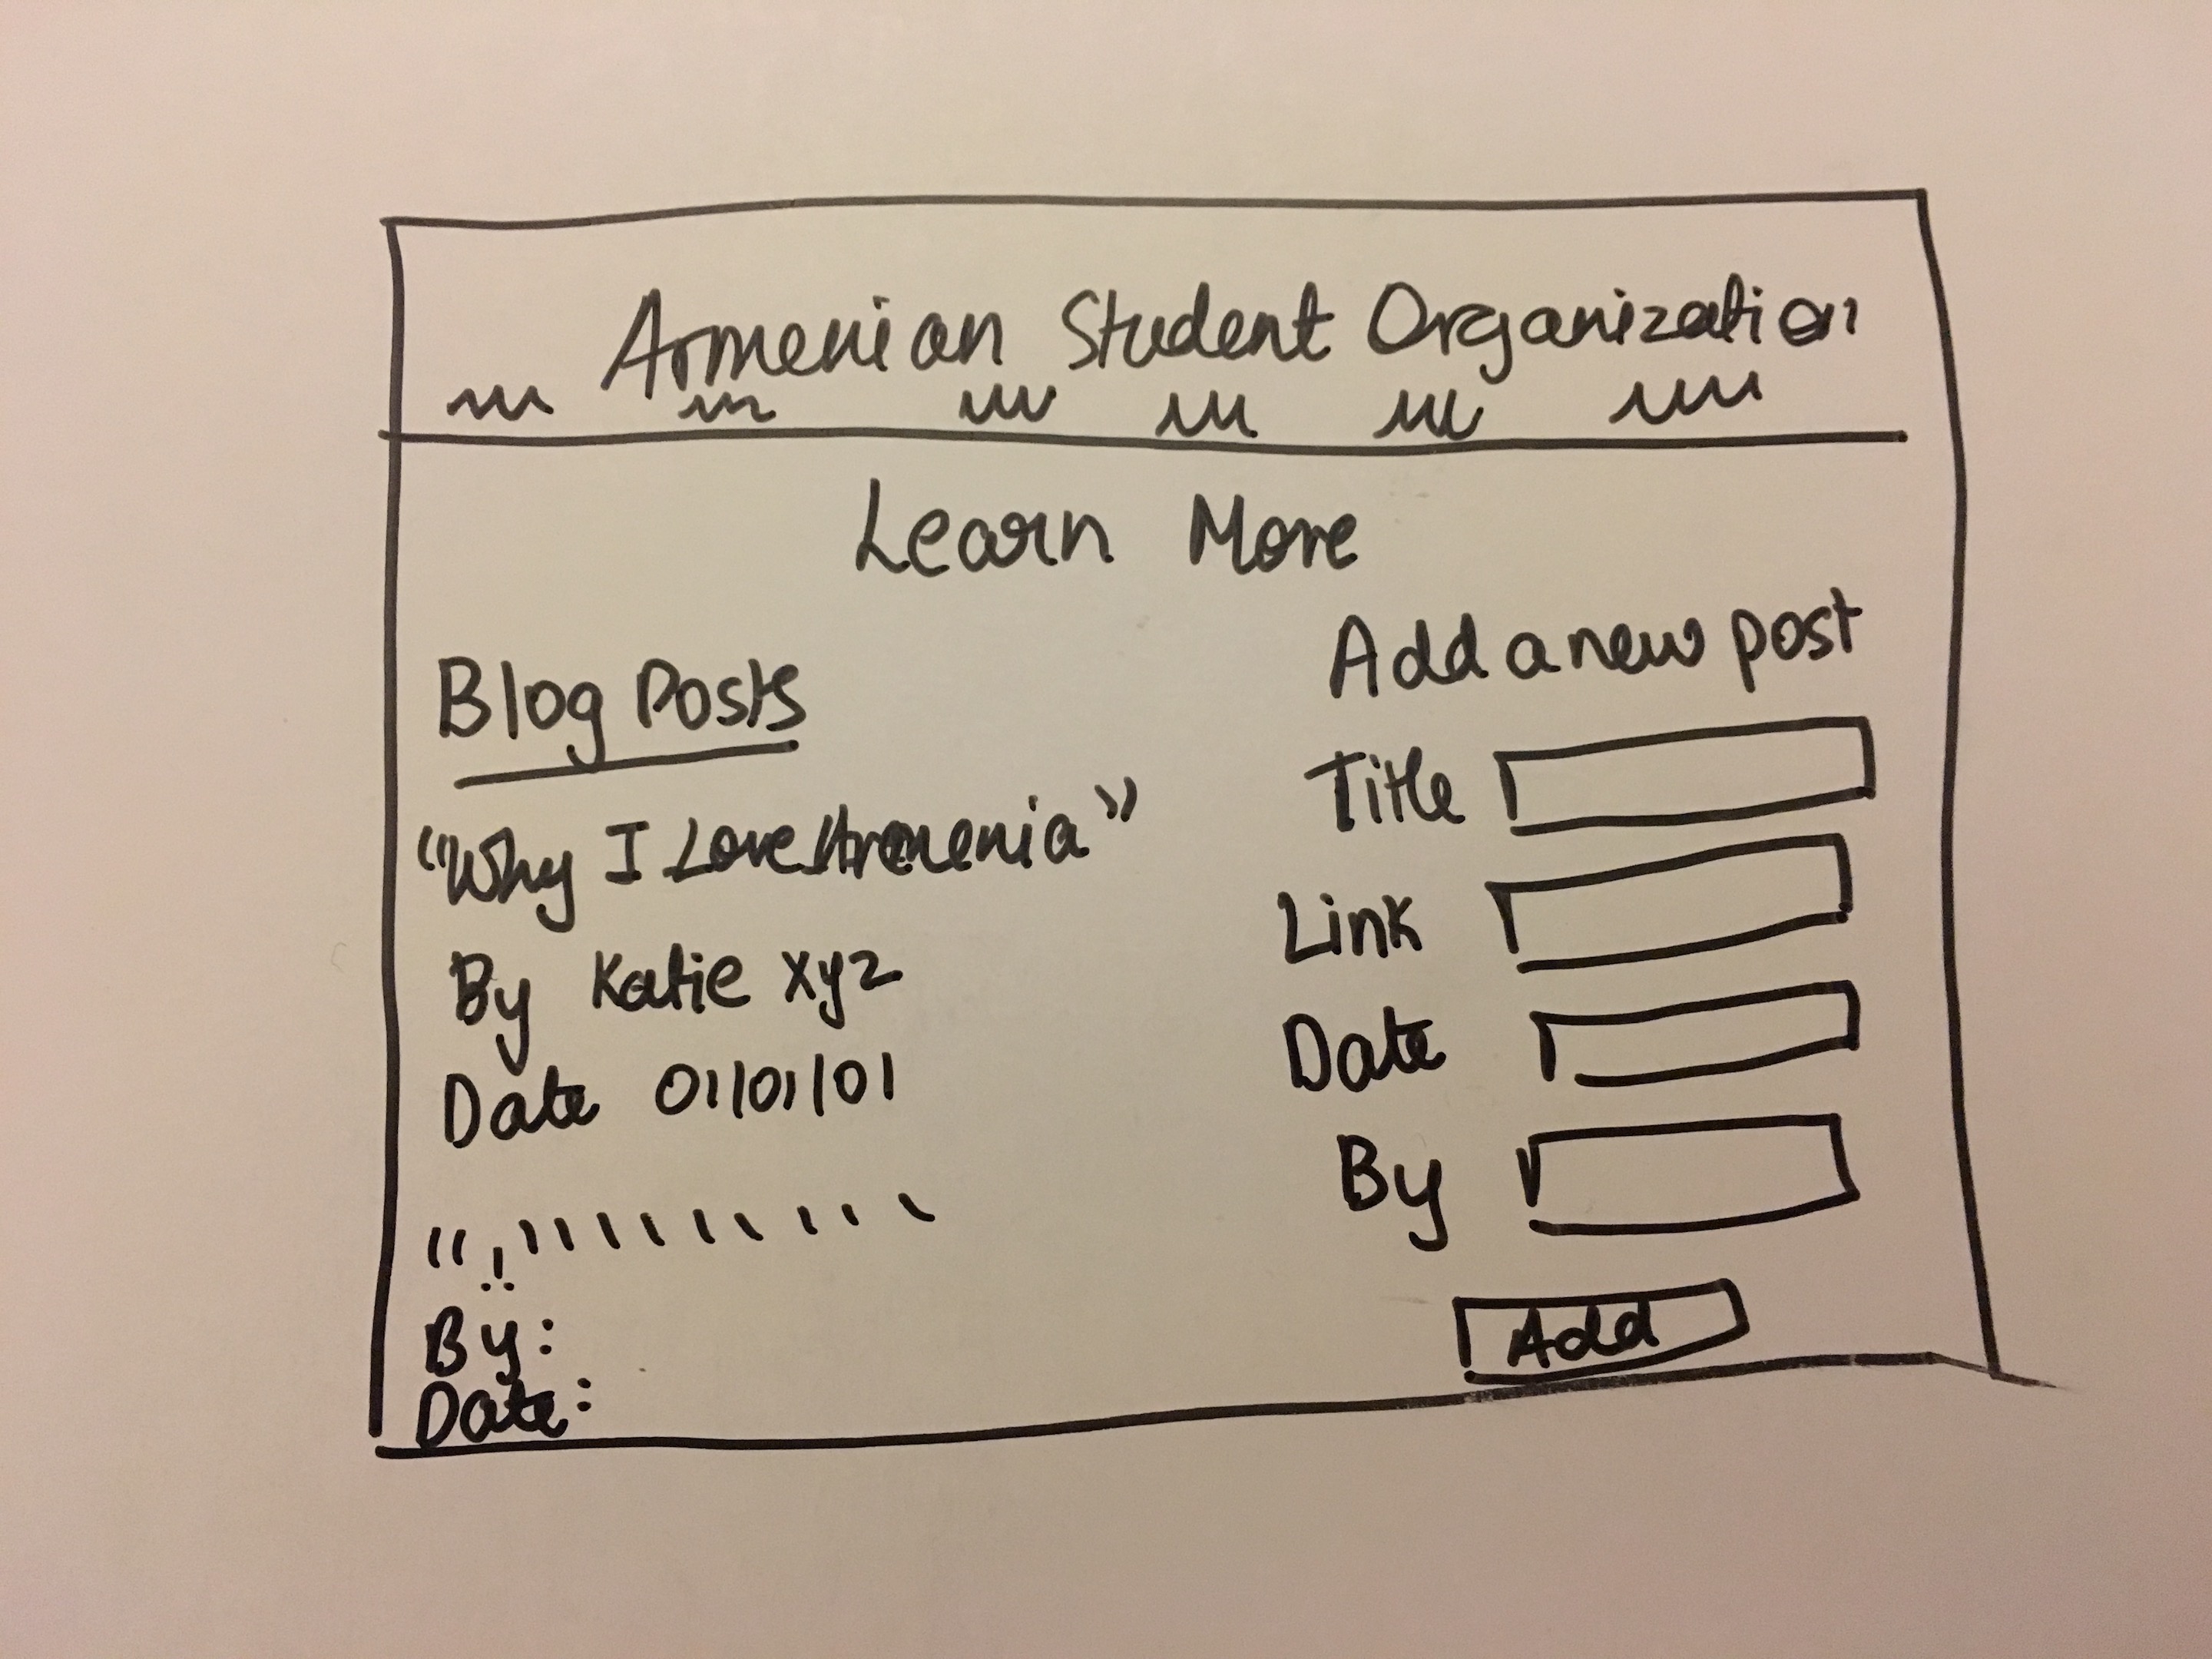 Armenian Student Organization
Learn More
Blog Posts
"Why I Love Armenia"
By Katie xyz
Date 01/01/01
By:
Date:
Add a new post
Title
Link
Date
By
Add